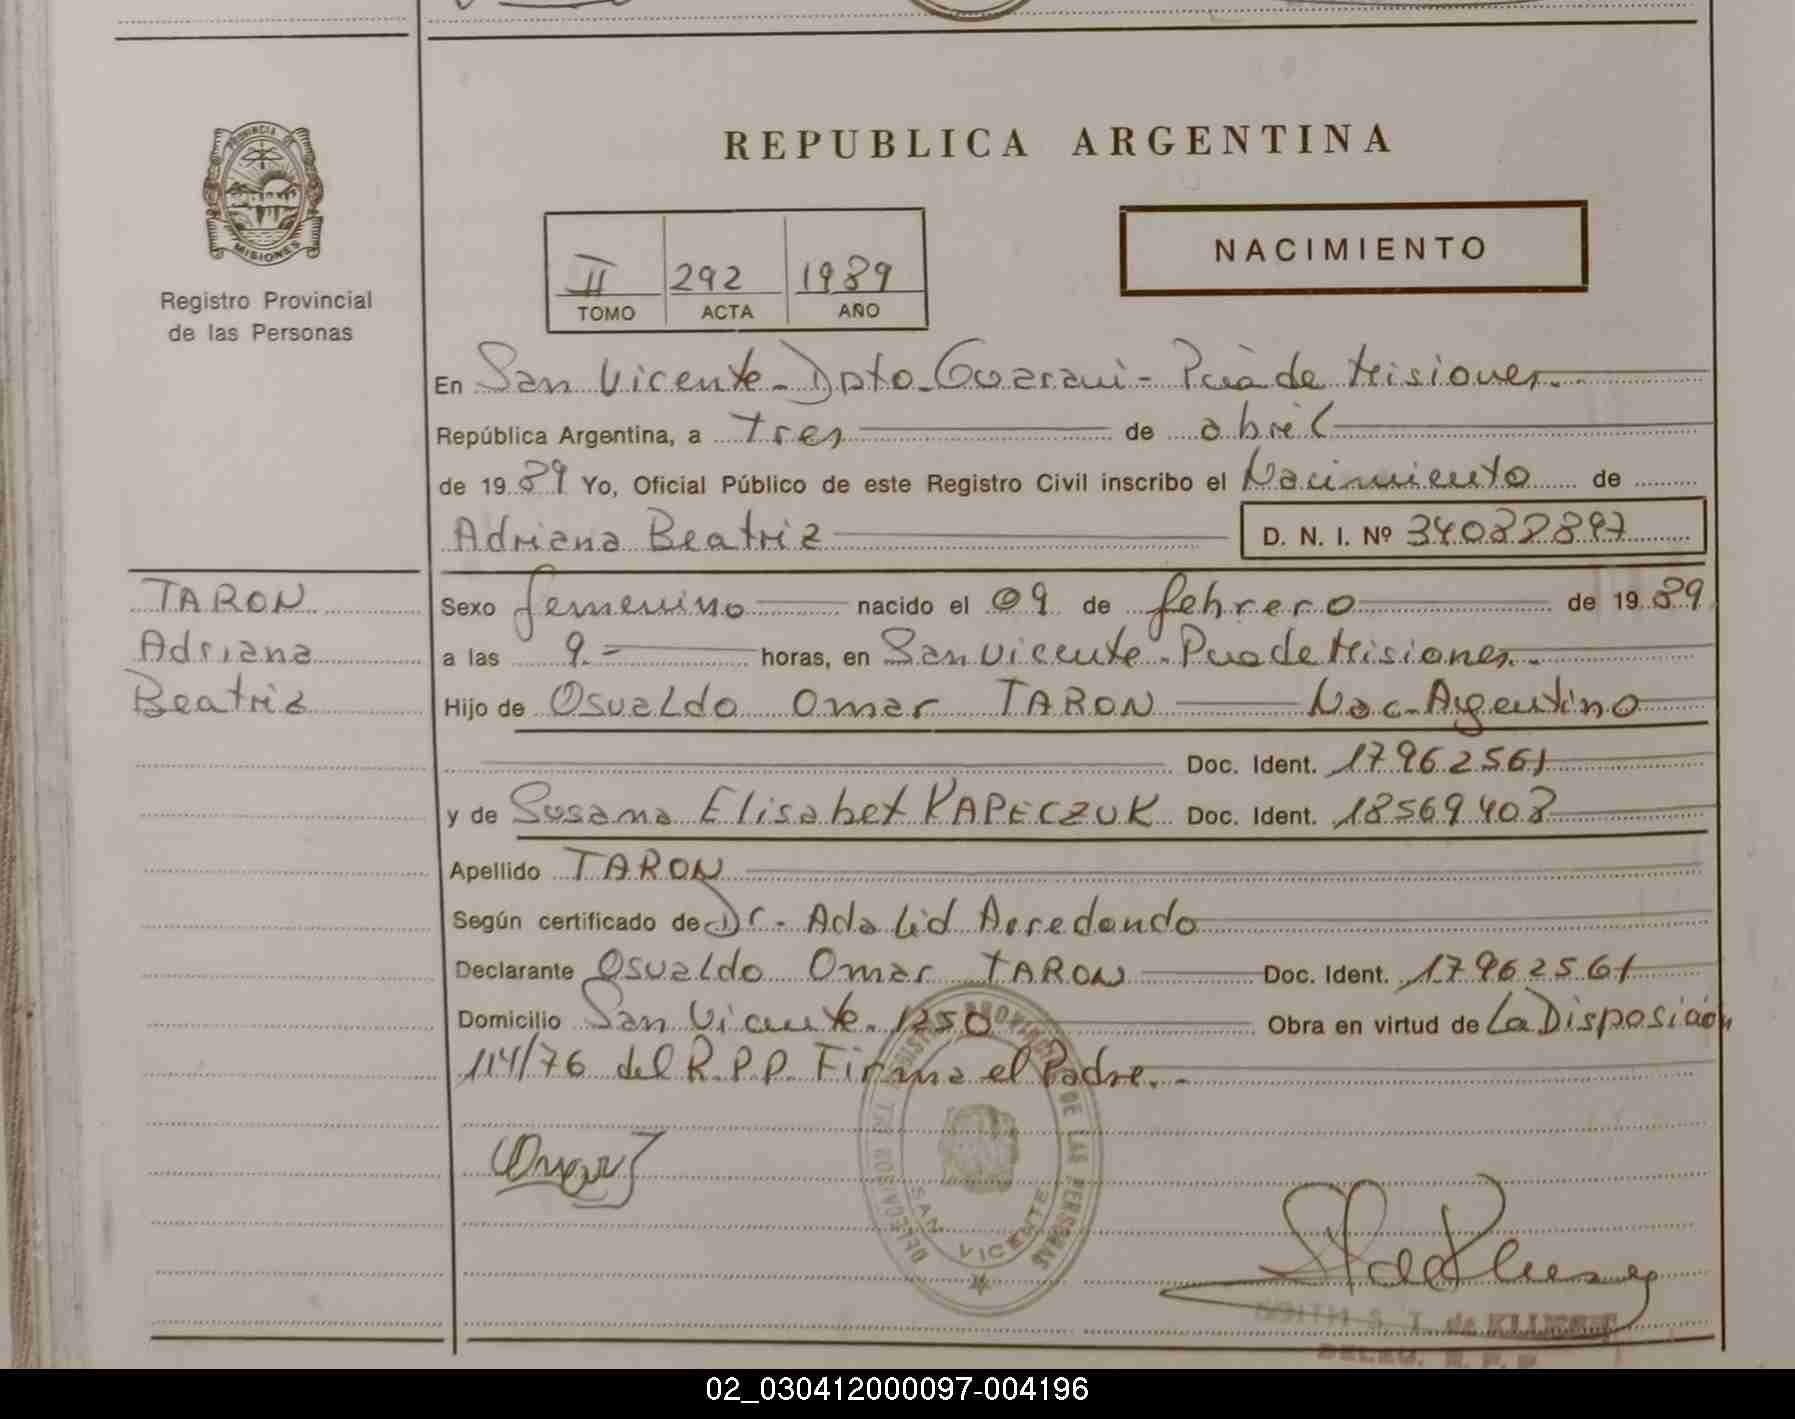 REPUBLICA ARGENTINA
PROVINCIA DE
MISIONES
Registro Provincial
de las Personas
NACIMIENTO
II 292 1989
TOMO ACTA AÑO
En San Vicente - Dpto. Guaraní - Pcia de Misiones.-
República Argentina, a tres de abril
de 1989 Yo, Oficial Público de este Registro Civil inscribo el Nacimiento de
Adriana Beatriz D. N. I. Nº 34082897
TARON
Adriana
Beatriz
Sexo femenino nacido el 09 de febrero de 1989
a las 9.- horas, en San Vicente - Pcia de Misiones.-
Hijo de Osvaldo Omar TARON Nac. Argentino
Doc. Ident. 17962561
y de Susana Elisabet KAPECZUK Doc. Ident. 18569408
Apellido TARON
Según certificado de Dr. Adalid Arredondo
Declarante Osvaldo Omar TARON Doc. Ident. 17962561
Domicilio San Vicente. 1250 Obra en virtud de La Disposición
114/76 del R.P.P. Firma el Padre.-
REGISTRO PROVINCIAL DE LAS PERSONAS
SAN VICENTE
DELEG. R. P. P.
02_030412000097-004196